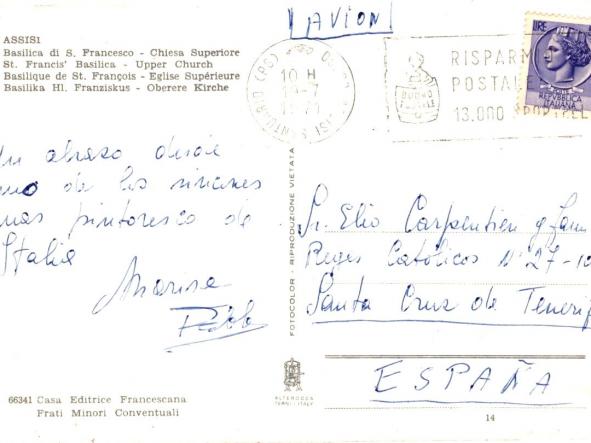 [AVION]
ASSISI
Basilica di S. Francesco - Chiesa Superiore
St. Francis' Basilica - Upper Church
Basilique de St. François - Eglise Supérieure
Basilika Hl. Franziskus - Oberere Kirche
10 H
RISPARM
POSTALE
13.000 SPORTELL
LIRE
REPUBBLICA
ITALIANA
Un abrazo desde
uno de los rincones
mas pintoresco de
Italia
Marisa
FOTOCOLOR - RIPRODUZIONE VIETATA
Sr. Elio Carpentier y Fam
Reyes Católicos Nº 27-10
Santa Cruz de Tenerif
ESPAÑA
ALTEROCCA
TERNI - ITALY
66341 Casa Editrice Francescana
Frati Minori Conventuali
14